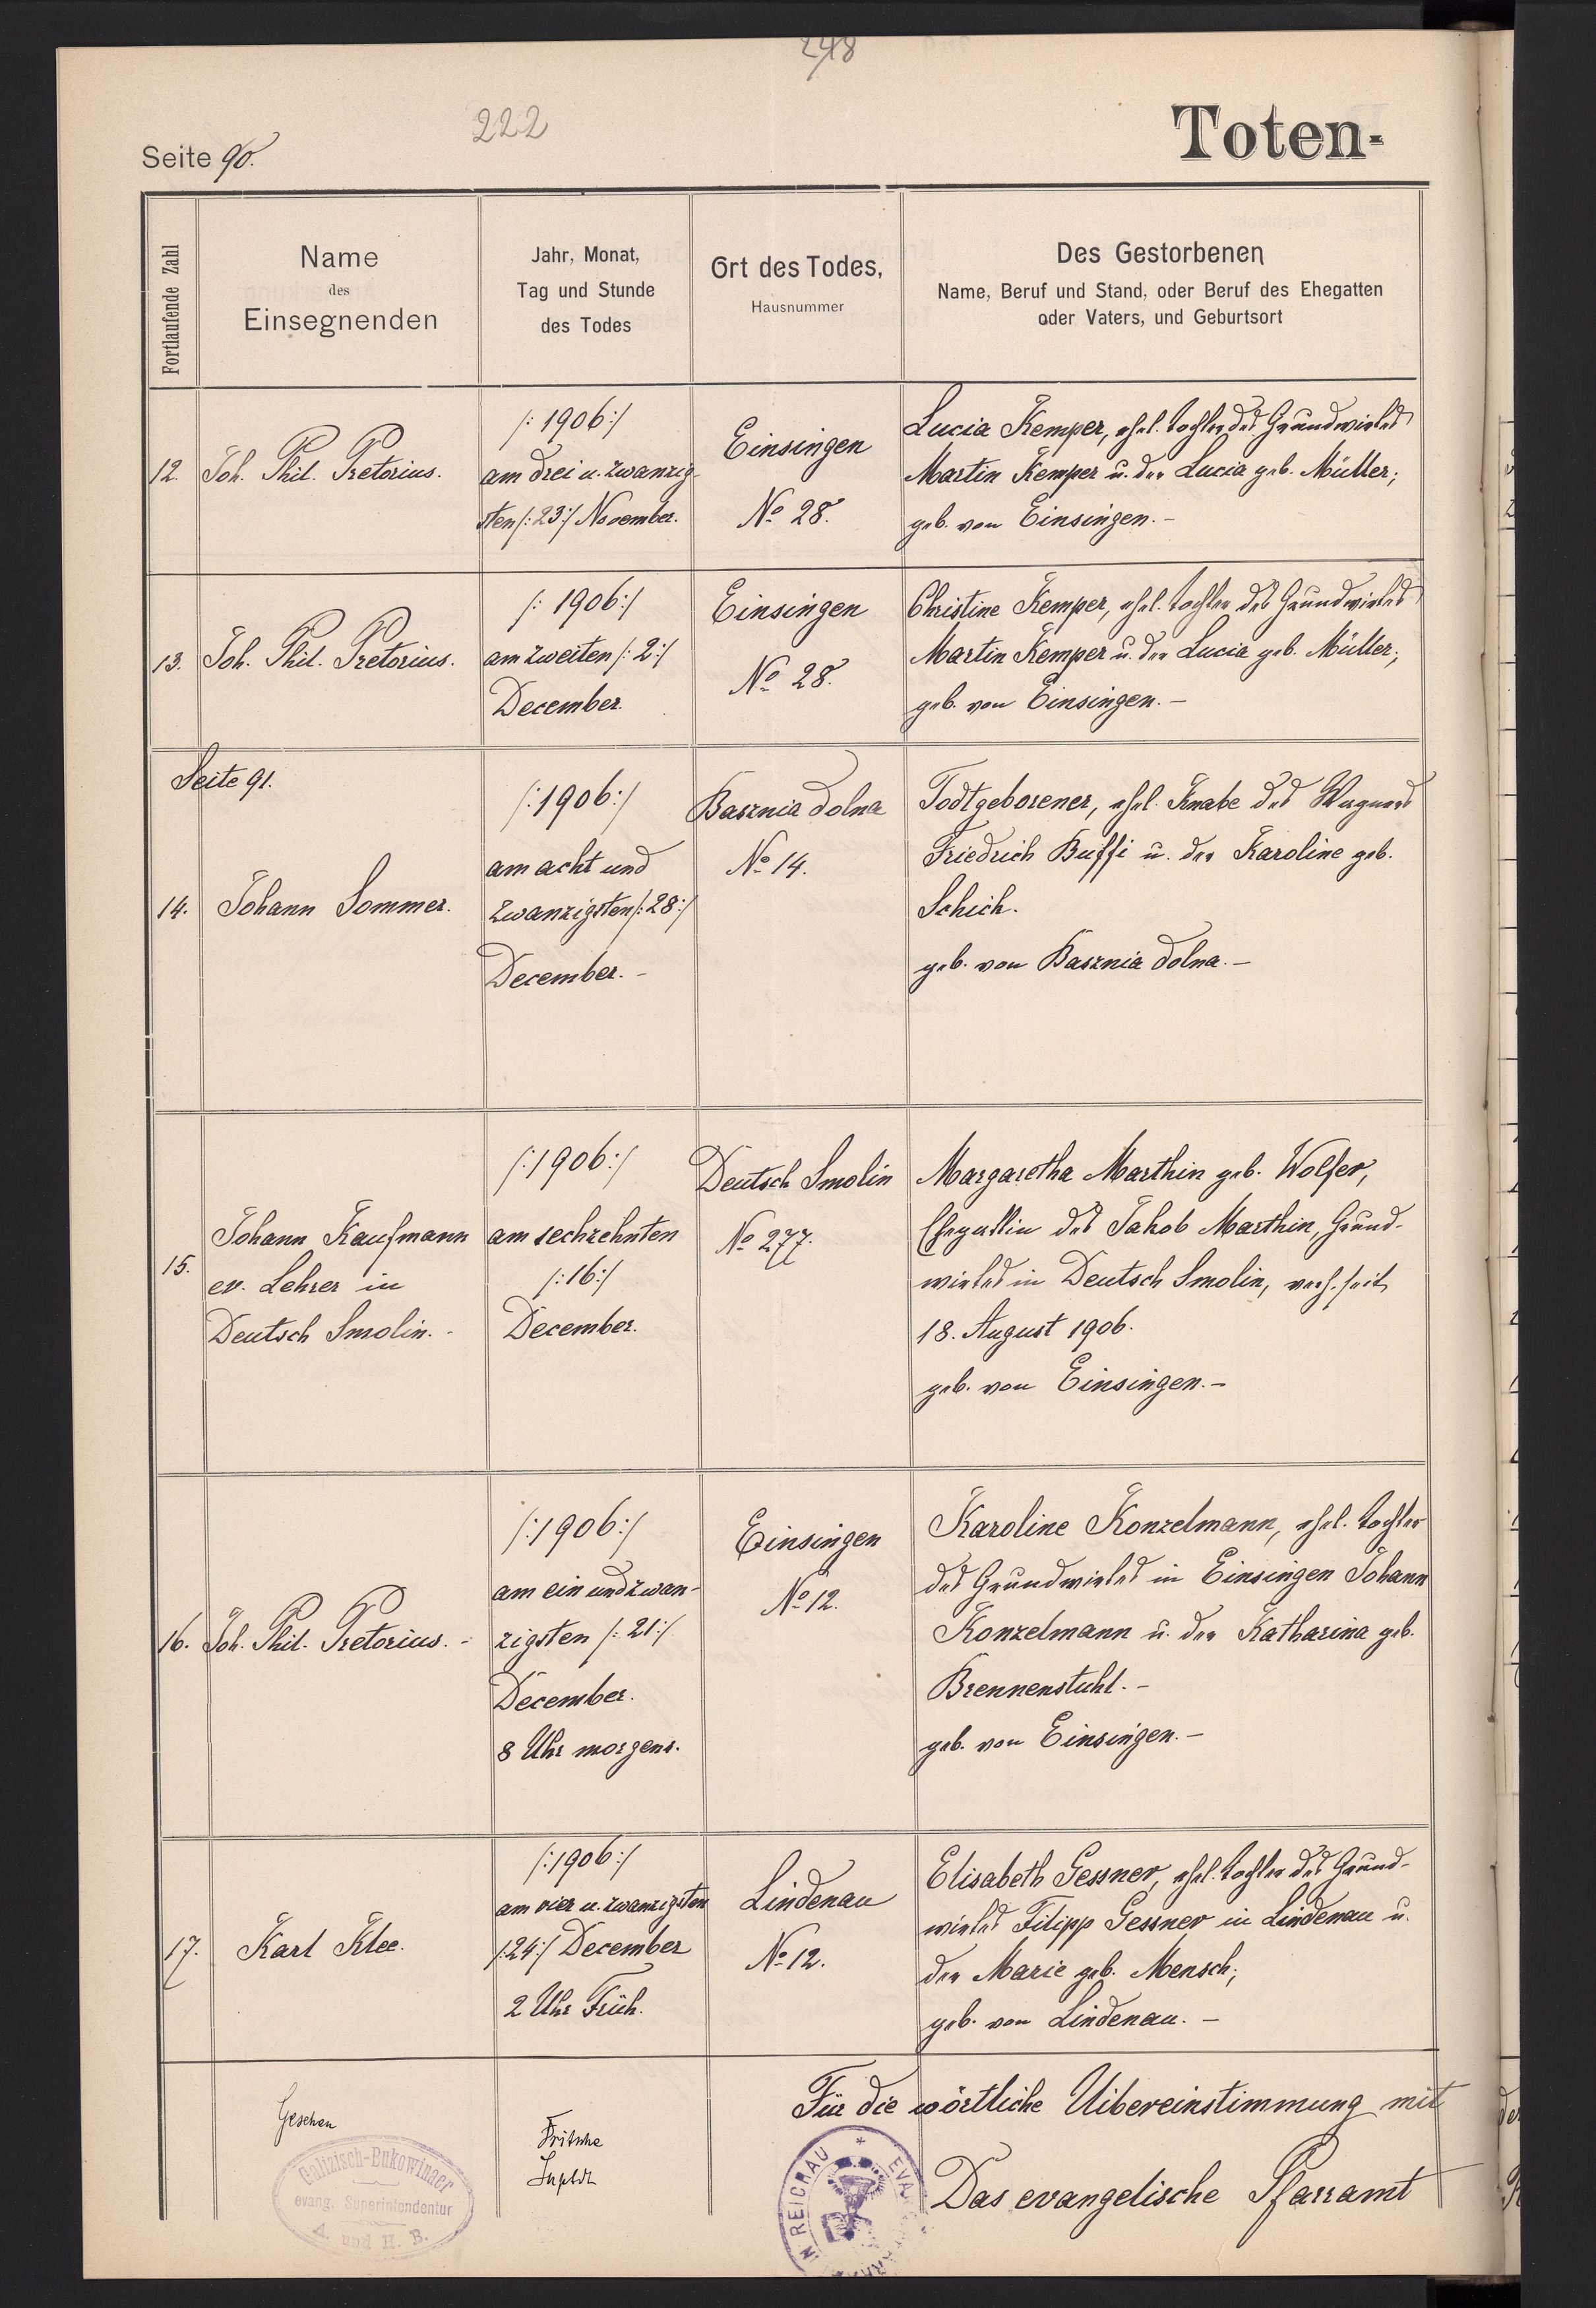 248
222
Seite 90.
Toten-
Fortlaufende Zahl
Name
des
Einsegnenden
Jahr, Monat,
Tag und Stunde
des Todes
Ort des Todes,
Hausnummer
Des Gestorbenen
Name, Beruf und Stand, oder Beruf des Ehegatten
oder Vaters, und Geburtsort
12.
Joh. Phil. Pretorius.
/: 1906 :/
am drei u. zwanzig-
sten /: 23 :/ November.
Einsingen
No 28.
Lucia Kemper, ehel. Tochter des Grundwirtes
Martin Kemper u. der Lucia geb. Müller;
geb. von Einsingen. -
13.
Joh. Phil. Pretorius.
/: 1906 :/
am zweiten /: 2 :/
December.
Einsingen
No 28.
Christine Kemper, ehel. Tochter des Grundwirtes
Martin Kemper u. der Lucia geb. Müller;
geb. von Einsingen. -
Seite 91.
14.
Johann Sommer.
/: 1906 :/
am acht und
zwanzigsten /: 28 :/
December. -
Basznia dolna
No 14.
Todtgeborener, ehel. Knabe des Wagners
Friedrich Buffi u. der Karoline geb.
Schick.
geb. von Basznia dolna. -
15.
Johann Kaufmann
ev. Lehrer in
Deutsch Smolin. -
/: 1906 :/
am sechzehnten
/: 16 :/
December.
Deutsch Smolin
No 277.
Margaretha Marthin geb. Wolfer,
Ehegattin des Jakob Marthin, Grund-
wirtes in Deutsch Smolin, verh. seit
18. August 1906.
geb. von Einsingen. -
16.
Joh. Phil. Pretorius. -
/: 1906 :/
am ein und zwan-
zigsten /: 21 :/
December.
8 Uhr morgens.
Einsingen
No 12.
Karoline Konzelmann, ehel. Tochter
des Grundwirtes in Einsingen Johann
Konzelmann u. der Katharina geb.
Brennenstuhl. -
geb. von Einsingen. -
17.
Karl Klee.
/: 1906 :/
am vier u. zwanzigsten
/: 24 :/ December
2 Uhr Früh.
Lindenau
No 12.
Elisabeth Gessner, ehel. Tochter des Grund-
wirtes Filipp Gessner in Lindenau u.
der Marie geb. Mensch;
geb. von Lindenau. -
Gesehen
Fritsche
Supldt
Galizisch-Bukowinaer
evang. Superintendentur
A. und H. B.
Für die wörtliche Uibereinstimmung mit
Das evangelische Pfarramt
IN REICHAU * EVA